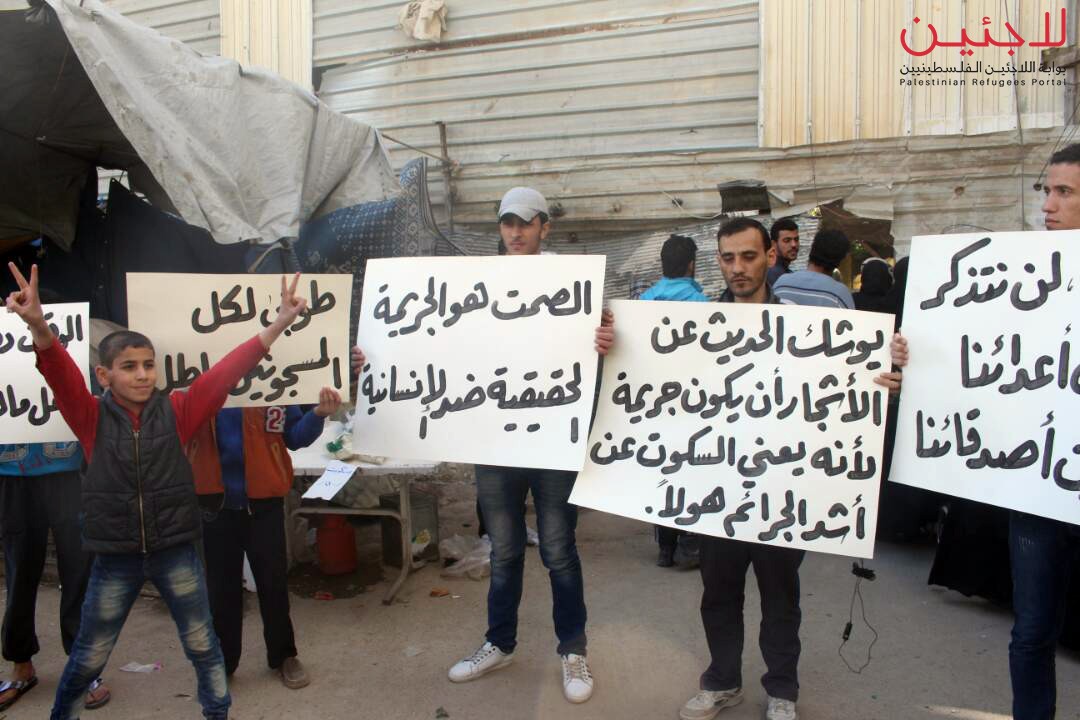 للاجئين
بوابة اللاجئين الفلسطينيين
Palestinian Refugees Portal
طوبى لكل
الصمت هو الجريمة
الحقيقية ضد الإنسانية
يوشك الحديث عن
الأشجار أن يكون جريمة
لأنه يعني السكوت عن
أشد الجرائم هولاً.
لن نتذكر
أعدائنا
أصدقائنا